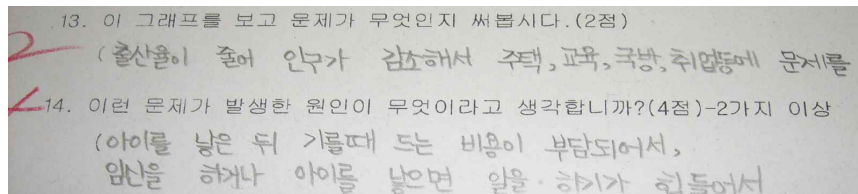 13. 이 그래프를 보고 문제가 무엇인지 써봅시다.(2점)
(출산율이 줄어 인구가 감소해서 주택,교육,국방,취업등에 문제를
14. 이런 문제가 발생한 원인이 무엇이라고 생각합니까?(4점)-2가지 이상
(아이를 낳은 뒤 기를때 드는 비용이 부담되어서,
임신을 하거나 아이를 낳으면 일을 하기가 힘들어서